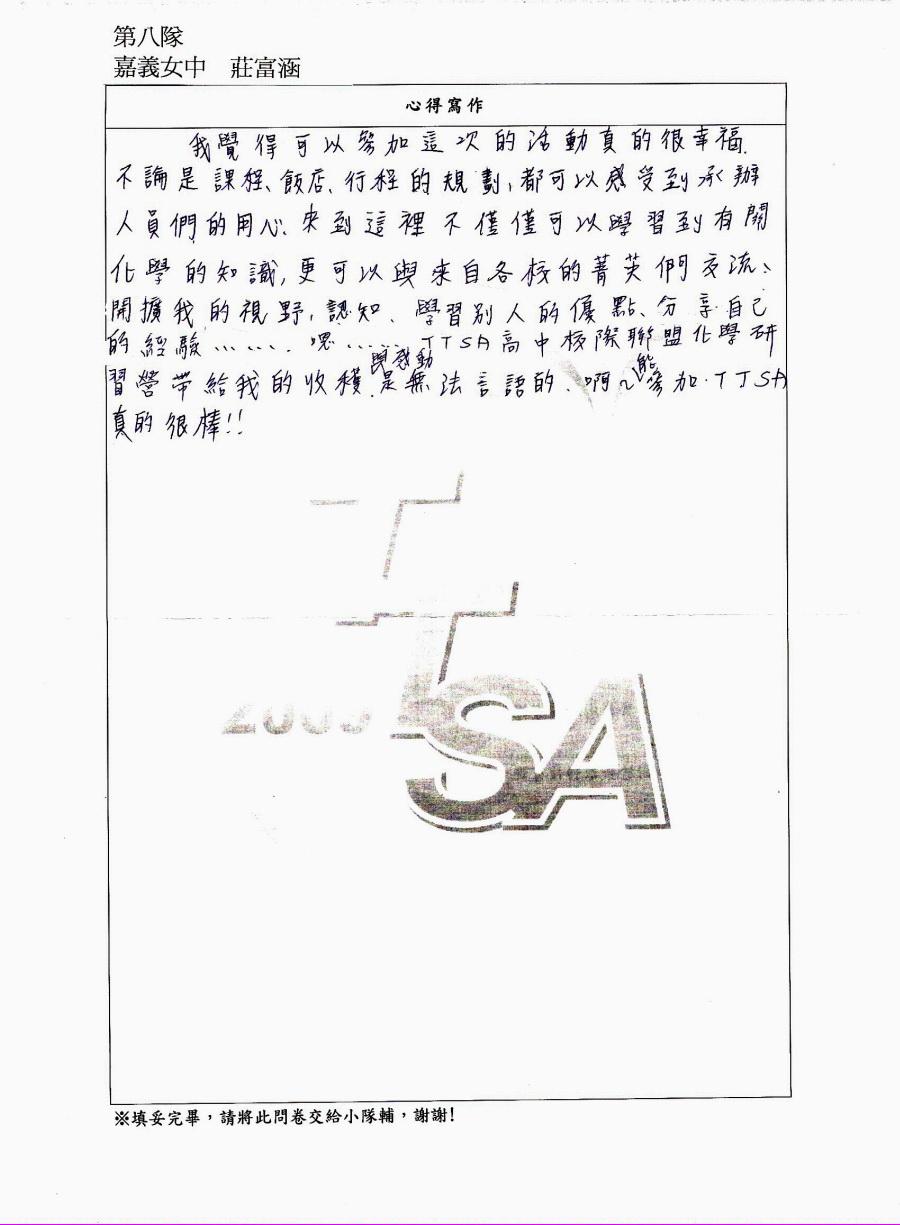 第八隊
嘉義女中 莊富涵
心得寫作
我覺得可以參加這次的活動真的很幸福.
不論是課程、飯店、行程的規劃,都可以感受到承辦
人員們的用心.來到這裡不僅僅可以學習到有關
化學的知識,更可以與來自各校的菁英們交流、
開擴我的視野,認知、學習別人的優點、分享自己
的經驗……. 嗯…… TTSA高中校際聯盟化學研
習營帶給我的收穫與感動是無法言語的.啊~能參加.TTSA
真的很棒!!
TTSA
※填妥完畢,請將此問卷交給小隊輔,謝謝!